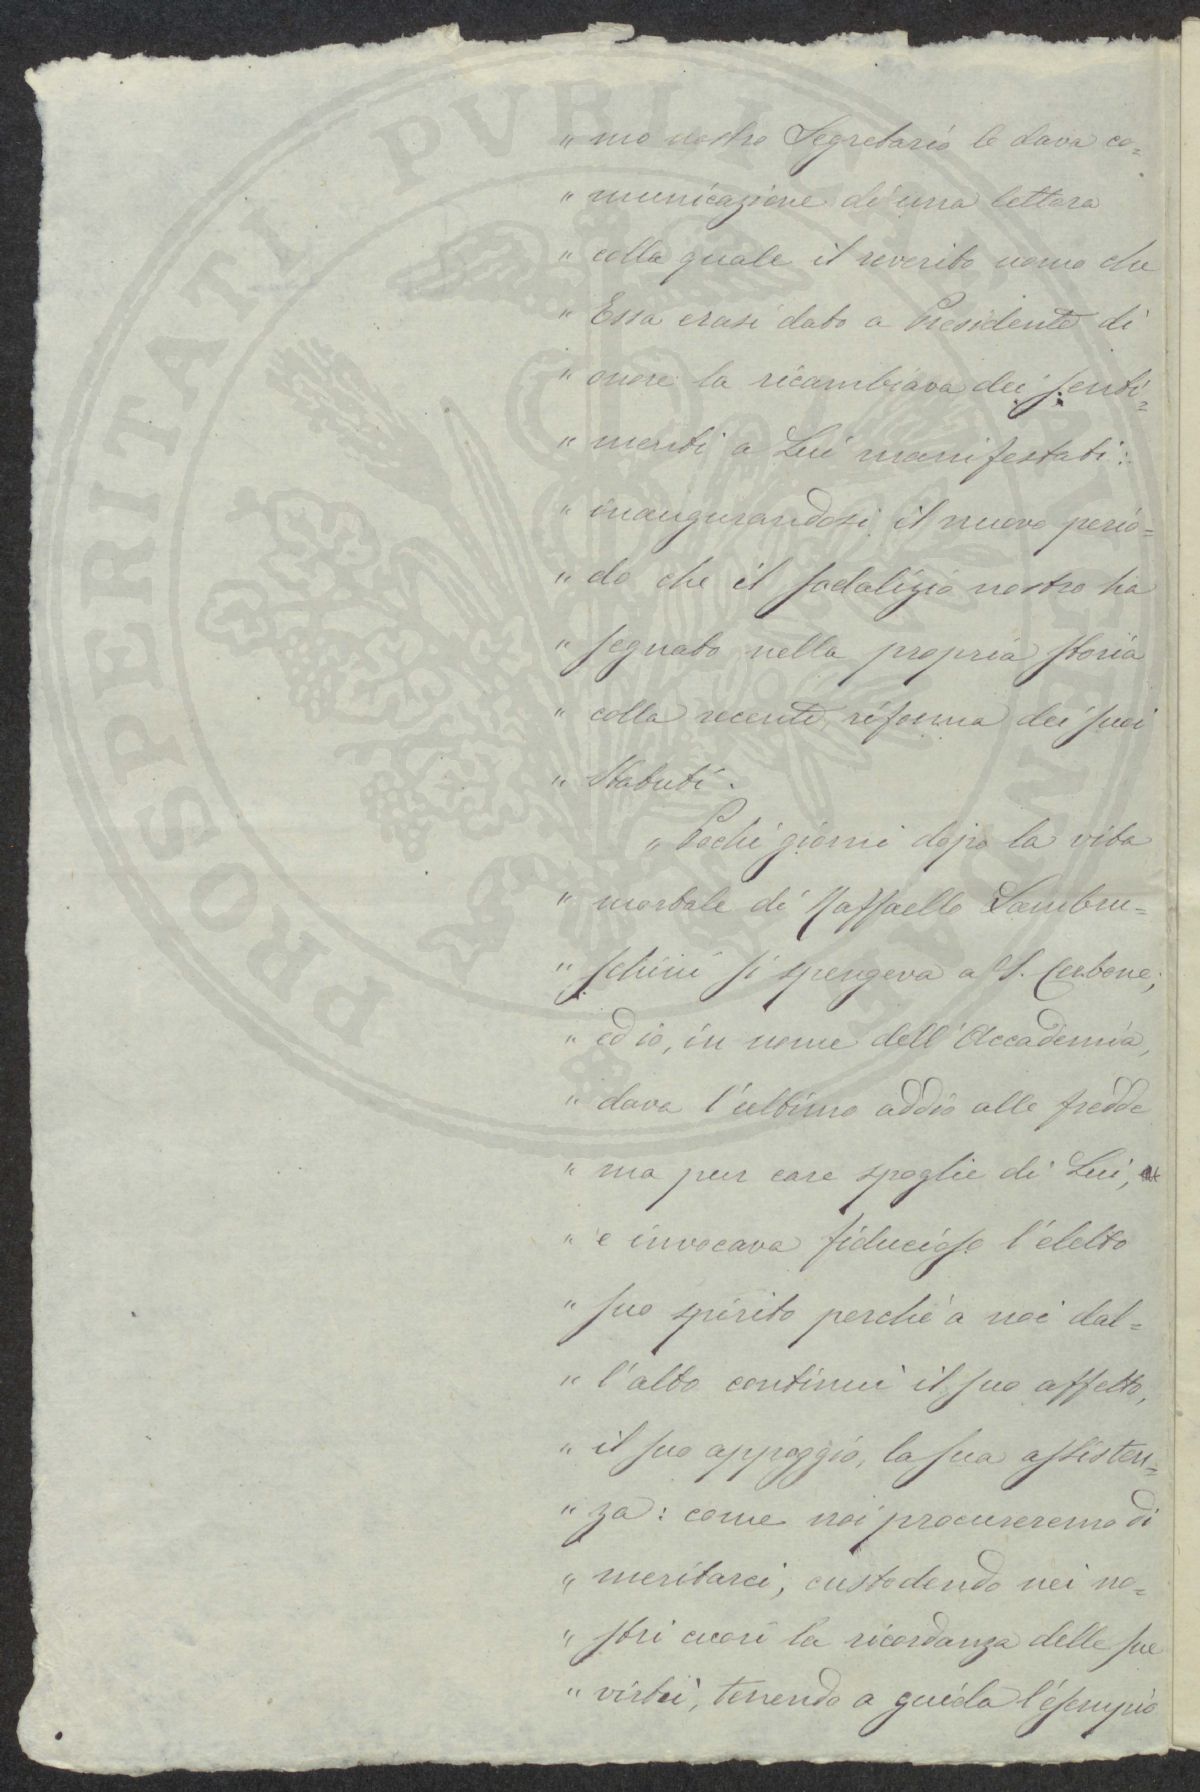 " mo nostro Segretario le dava co=
" municazione di una lettera
" colla quale il reverito uomo che
" Essa erasi dato a Presidente di
" onore la ricambiava dei senti=
" menti a Lui manifestati:
" inaugurandosi il nuovo perio=
" do che il sodalizio nostro ha
" segnato nella propria storia
" colla recente riforma dei suoi
" Statuti.
" Pochi giorni dopo la vita
" mortale di Raffaello Lambru=
" schini si spengeva a S. Cerbone;
" ed io, in nome dell'Accademia,
" dava l'ultimo addio alle fredde
" ma pur care spoglie di Lui,
" e invocava fiducioso l'eletto
" suo spirito perchè a noi dal=
" l'alto continui il suo affetto,
" il suo appoggio, la sua assisten=
" za: come noi procureremo di
" meritarci, custodendo nei no=
" stri cuori la ricordanza delle sue
" virtù, tenendo a guida l'esempio
PROSPERITATI PVBLICAE AVGENDAE